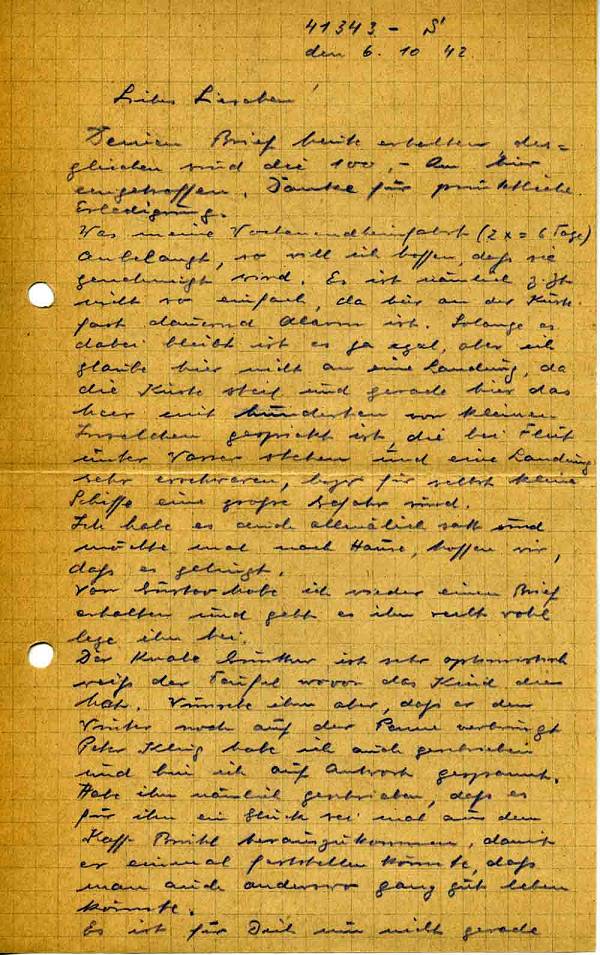 41343 - S
den 6. 10 42
Liebes Lieschen!
Deinen Brief heute erhalten, des=
gleichen sind die 100,- RM hier
eingetroffen. Danke für pünktliche
Erledigung.
Was meine Wochenendheimfahrt (2 x = 6 Tage)
anbelangt, so will ich hoffen, daß sie
genehmigt wird. Es ist nämlich z. Zt.
nicht so einfach, da hier an der Küste
fast dauernd Alarm ist. Solange es
dabei bleibt ist es ja egal, aber ich
glaube hier nicht an eine Landung, da
die Küste steil und gerade hier das
Meer mit hunderten von kleinen
Inselchen gespickt ist, die bei Flut
unter Wasser stehen und eine Landung
sehr erschweren, bezw für selbst kleine
Schiffe eine große Gefahr sind.
Ich habe es auch allmälich satt und
möchte mal nach Hause, hoffen wir,
daß es gelingt.
Von Gustav habe ich wieder einen Brief
erhalten und geht es ihm recht wohl
lege ihn bei.
Der Knabe Günther ist sehr optimistisch
weiß der Teufel wovon das Kind dies
hat. Wünsche ihm aber, daß er den
Winter noch auf der Penne verbringt
Peter habe ich auch geschrieben
und bin ich auf Antwort gespannt.
Habe ihm nämlich geschrieben, daß es
für ihn ein Glück sei mal aus dem
Kaff Brühl herauszukommen, damit
er einmal feststellen könnte, daß
man auch anderswo ganz gut leben
könnte.
Es ist für Dich nun nicht gerade